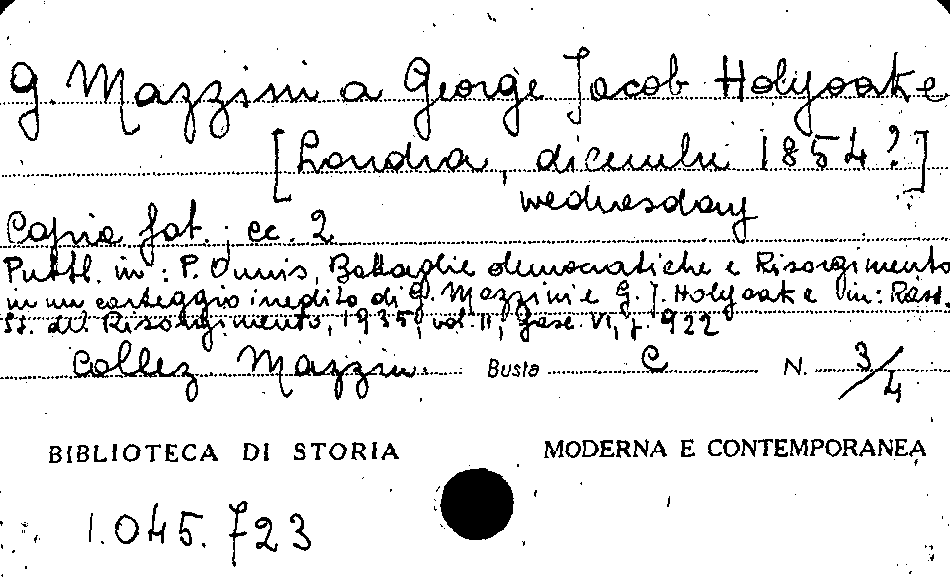 G. Mazzini a George Jacob Holyoake
[Londra, dicembre 1854?]
wednesday
Copia fot.; cc. 2
Pubbl. in: P. Ounis, Battaglie democratiche e Risorgimento
in un carteggio inedito di G. Mazzini e G. J. Holyoake in: Rass.
St. del Risorgimento, 1935, vol. II, fasc. VI, p. 922
Collez. Mazzini Busta C N. 3/4
BIBLIOTECA DI STORIA MODERNA E CONTEMPORANEA
1.045.723